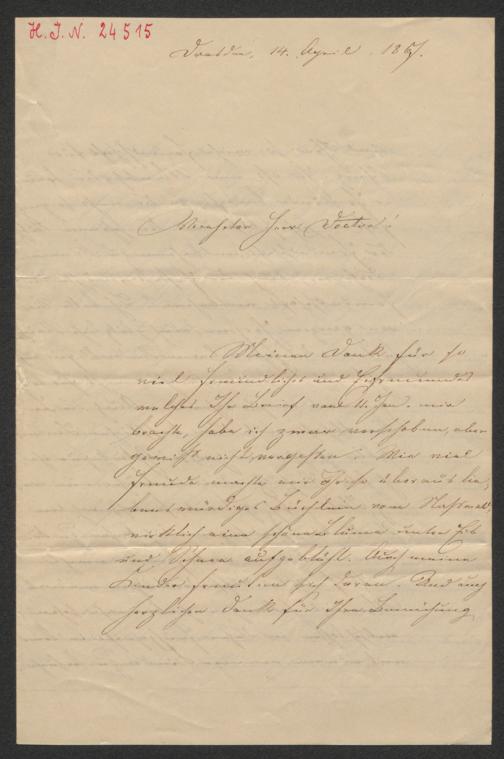 H.I.N. 24515
Dresden, 14. April 1867.
Verehrter Herr Doctor!
Meinen Dank für so
viel Freundliches und
welches Ihr Brief vom 11. Jan. mir
brachte, habe ich zwar verschoben, aber
gewiß nicht vergessen. Wie viel
Freude machte mir Ihr so überaus lie
benswürdiges Büchlein vom
wirklich eine schöne Blume unter Eis
und Schnee aufgeblüht. Auch meine
Kinder freuten sich daran. Und auch
herzlichen Dank für Ihre Bemühung